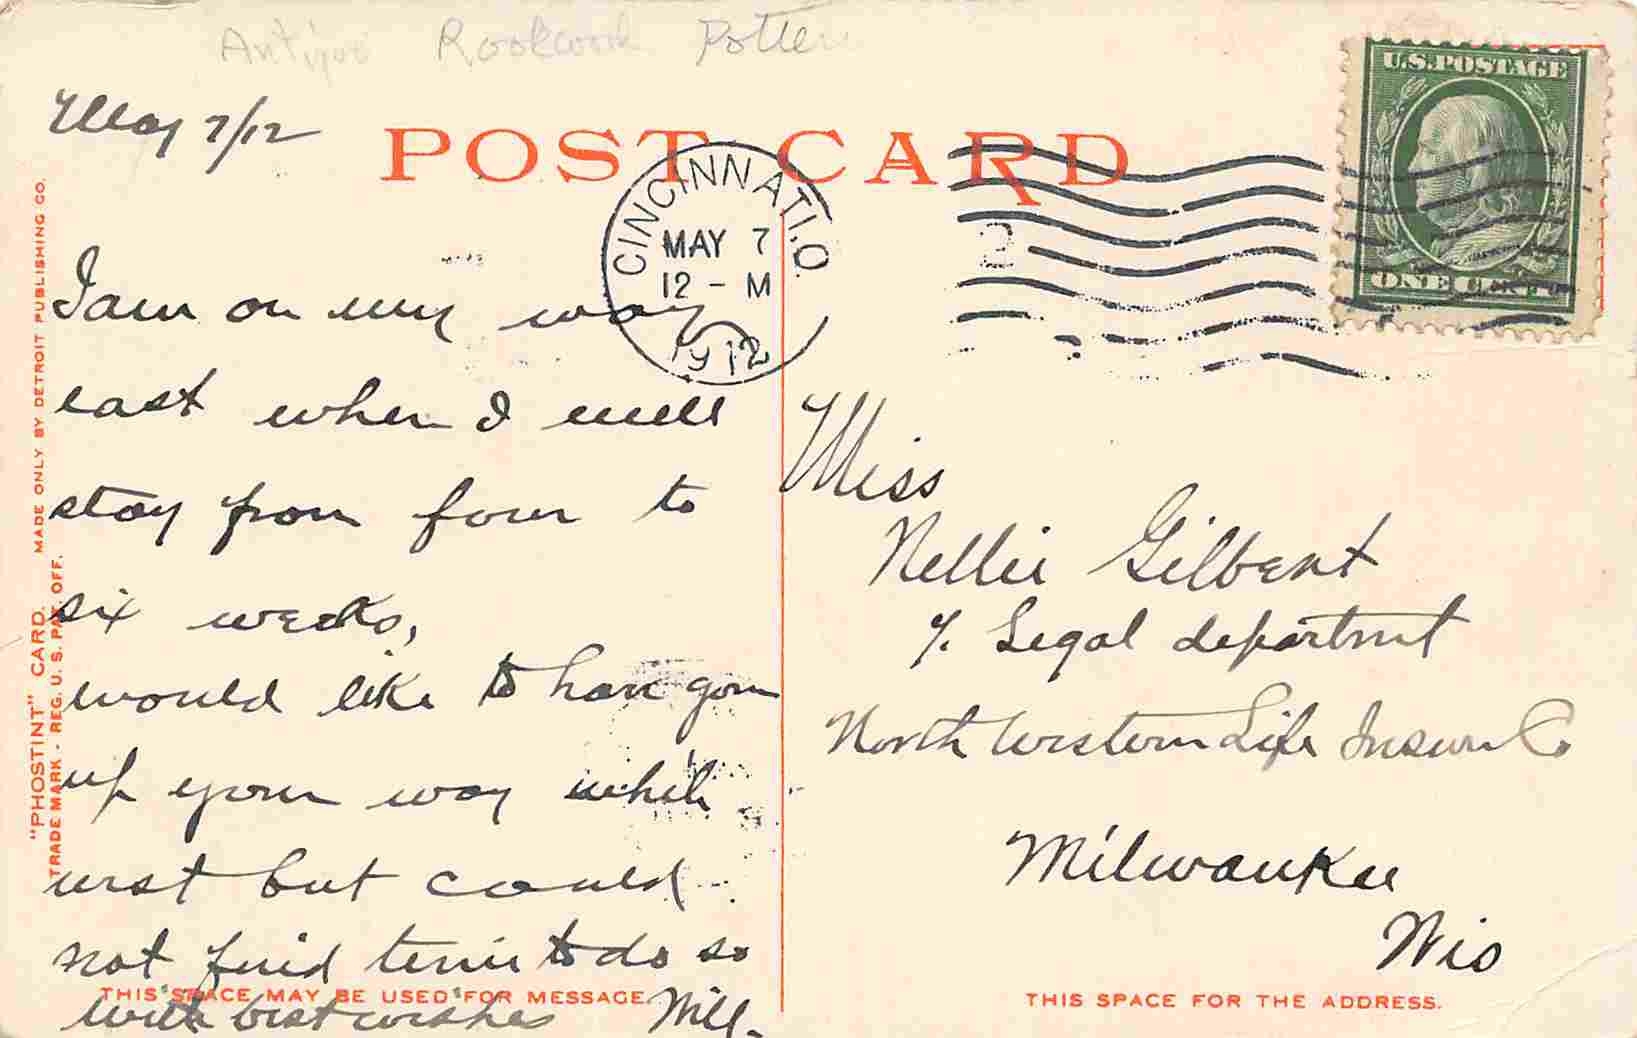 Rookwood Potter
May 7/12
POST CARD
U.S. POSTAGE
ONE CENT
CINCINNATI, O.
MAY 7
12 - M
1912
"PHOSTINT" CARD. MADE ONLY BY DETROIT PUBLISHING CO.
TRADE MARK - REG. U. S. PAT. OFF.
I am on my way
east when I will
stay from four to
six weeks,
would like to have gone
up your way while
west but could
not find time to do so
with best wishes Will.
THIS SPACE MAY BE USED FOR MESSAGE.
Miss
Nellie Gilbert
% Legal department
North Western Life Insur Co
Milwaukee
Wis
THIS SPACE FOR THE ADDRESS.